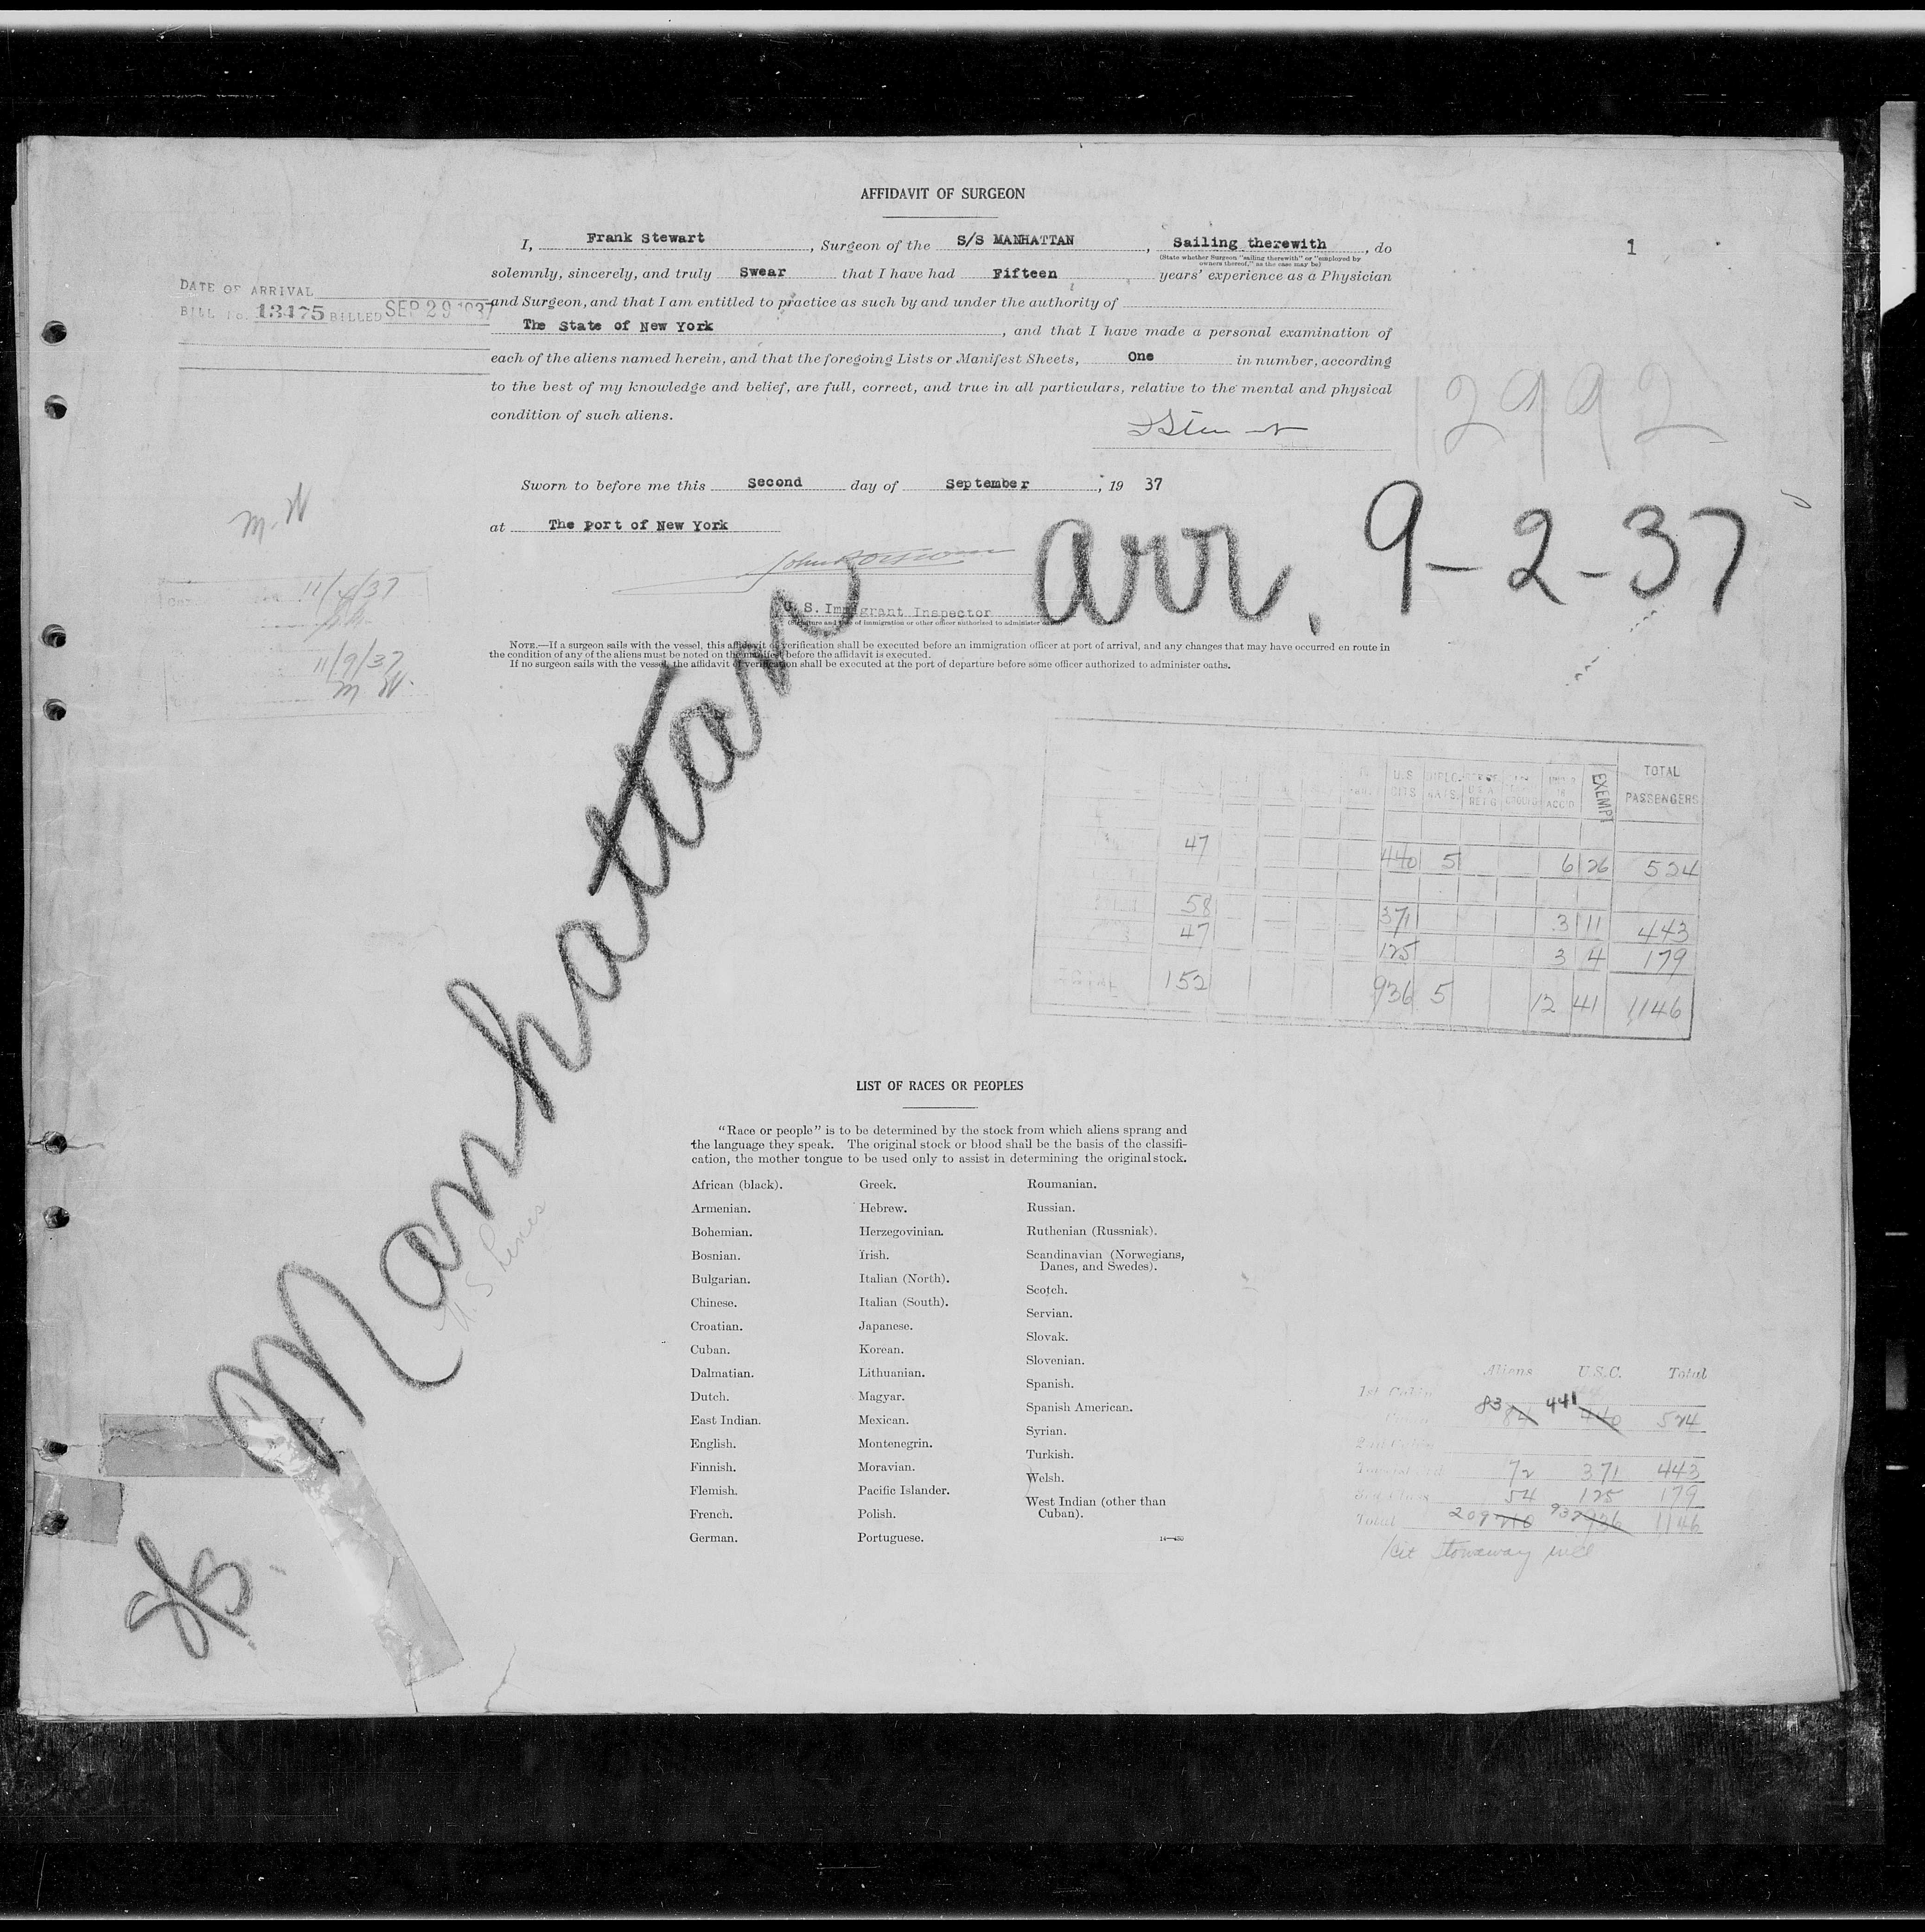 AFFIDAVIT OF SURGEON
1
I, Frank Stewart, Surgeon of the S/S MANHATTAN, Sailing therewith, do
(State whether Surgeon "sailing therewith" or "employed by
owners thereof," as the case may be)
solemnly, sincerely, and truly Swear that I have had Fifteen years' experience as a Physician
and Surgeon, and that I am entitled to practice as such by and under the authority of
The State of New York, and that I have made a personal examination of
each of the aliens named herein, and that the foregoing Lists or Manifest Sheets, One in number, according
to the best of my knowledge and belief, are full, correct, and true in all particulars, relative to the mental and physical
condition of such aliens.
DATE OF ARRIVAL
BILL No. 13475 BILLED SEP 29 1937
12992
Sworn to before me this Second day of September, 19 37
at The port of New York
M. W
arr. 9-2-37
U. S. Immigrant Inspector
(Signature and title of immigration or other officer authorized to administer oaths)
11/4/37
11/9/37
M W.
NOTE.—If a surgeon sails with the vessel, this affidavit of verification shall be executed before an immigration officer at port of arrival, and any changes that may have occurred en route in
the condition of any of the aliens must be noted on the manifest before the affidavit is executed.
If no surgeon sails with the vessel, the affidavit of verification shall be executed at the port of departure before some officer authorized to administer oaths.
S/S. Manhattan
U.S CITS DIPLO-MATS EXEMPT TOTAL PASSENGERS
47 440 5 6 26 524
58 371 3 11 443
47 125 3 4 179
152 936 5 12 41 1146
LIST OF RACES OR PEOPLES
"Race or people" is to be determined by the stock from which aliens sprang and
the language they speak. The original stock or blood shall be the basis of the classifi-
cation, the mother tongue to be used only to assist in determining the original stock.
African (black).
Armenian.
Bohemian.
Bosnian.
Bulgarian.
Chinese.
Croatian.
Cuban.
Dalmatian.
Dutch.
East Indian.
English.
Finnish.
Flemish.
French.
German.
Greek.
Hebrew.
Herzegovinian.
Irish.
Italian (North).
Italian (South).
Japanese.
Korean.
Lithuanian.
Magyar.
Mexican.
Montenegrin.
Moravian.
Pacific Islander.
Polish.
Portuguese.
Roumanian.
Russian.
Ruthenian (Russniak).
Scandinavian (Norwegians,
Danes, and Swedes).
Scotch.
Servian.
Slovak.
Slovenian.
Spanish.
Spanish American.
Syrian.
Turkish.
Welsh.
West Indian (other than
Cuban).
Aliens U.S.C. Total
1st Cabin
83 84 441 440 524
2nd Cabin
72 371 443
3rd Class 54 125 179
Total 209 210 937 936 1146
1 cit stowaway incl